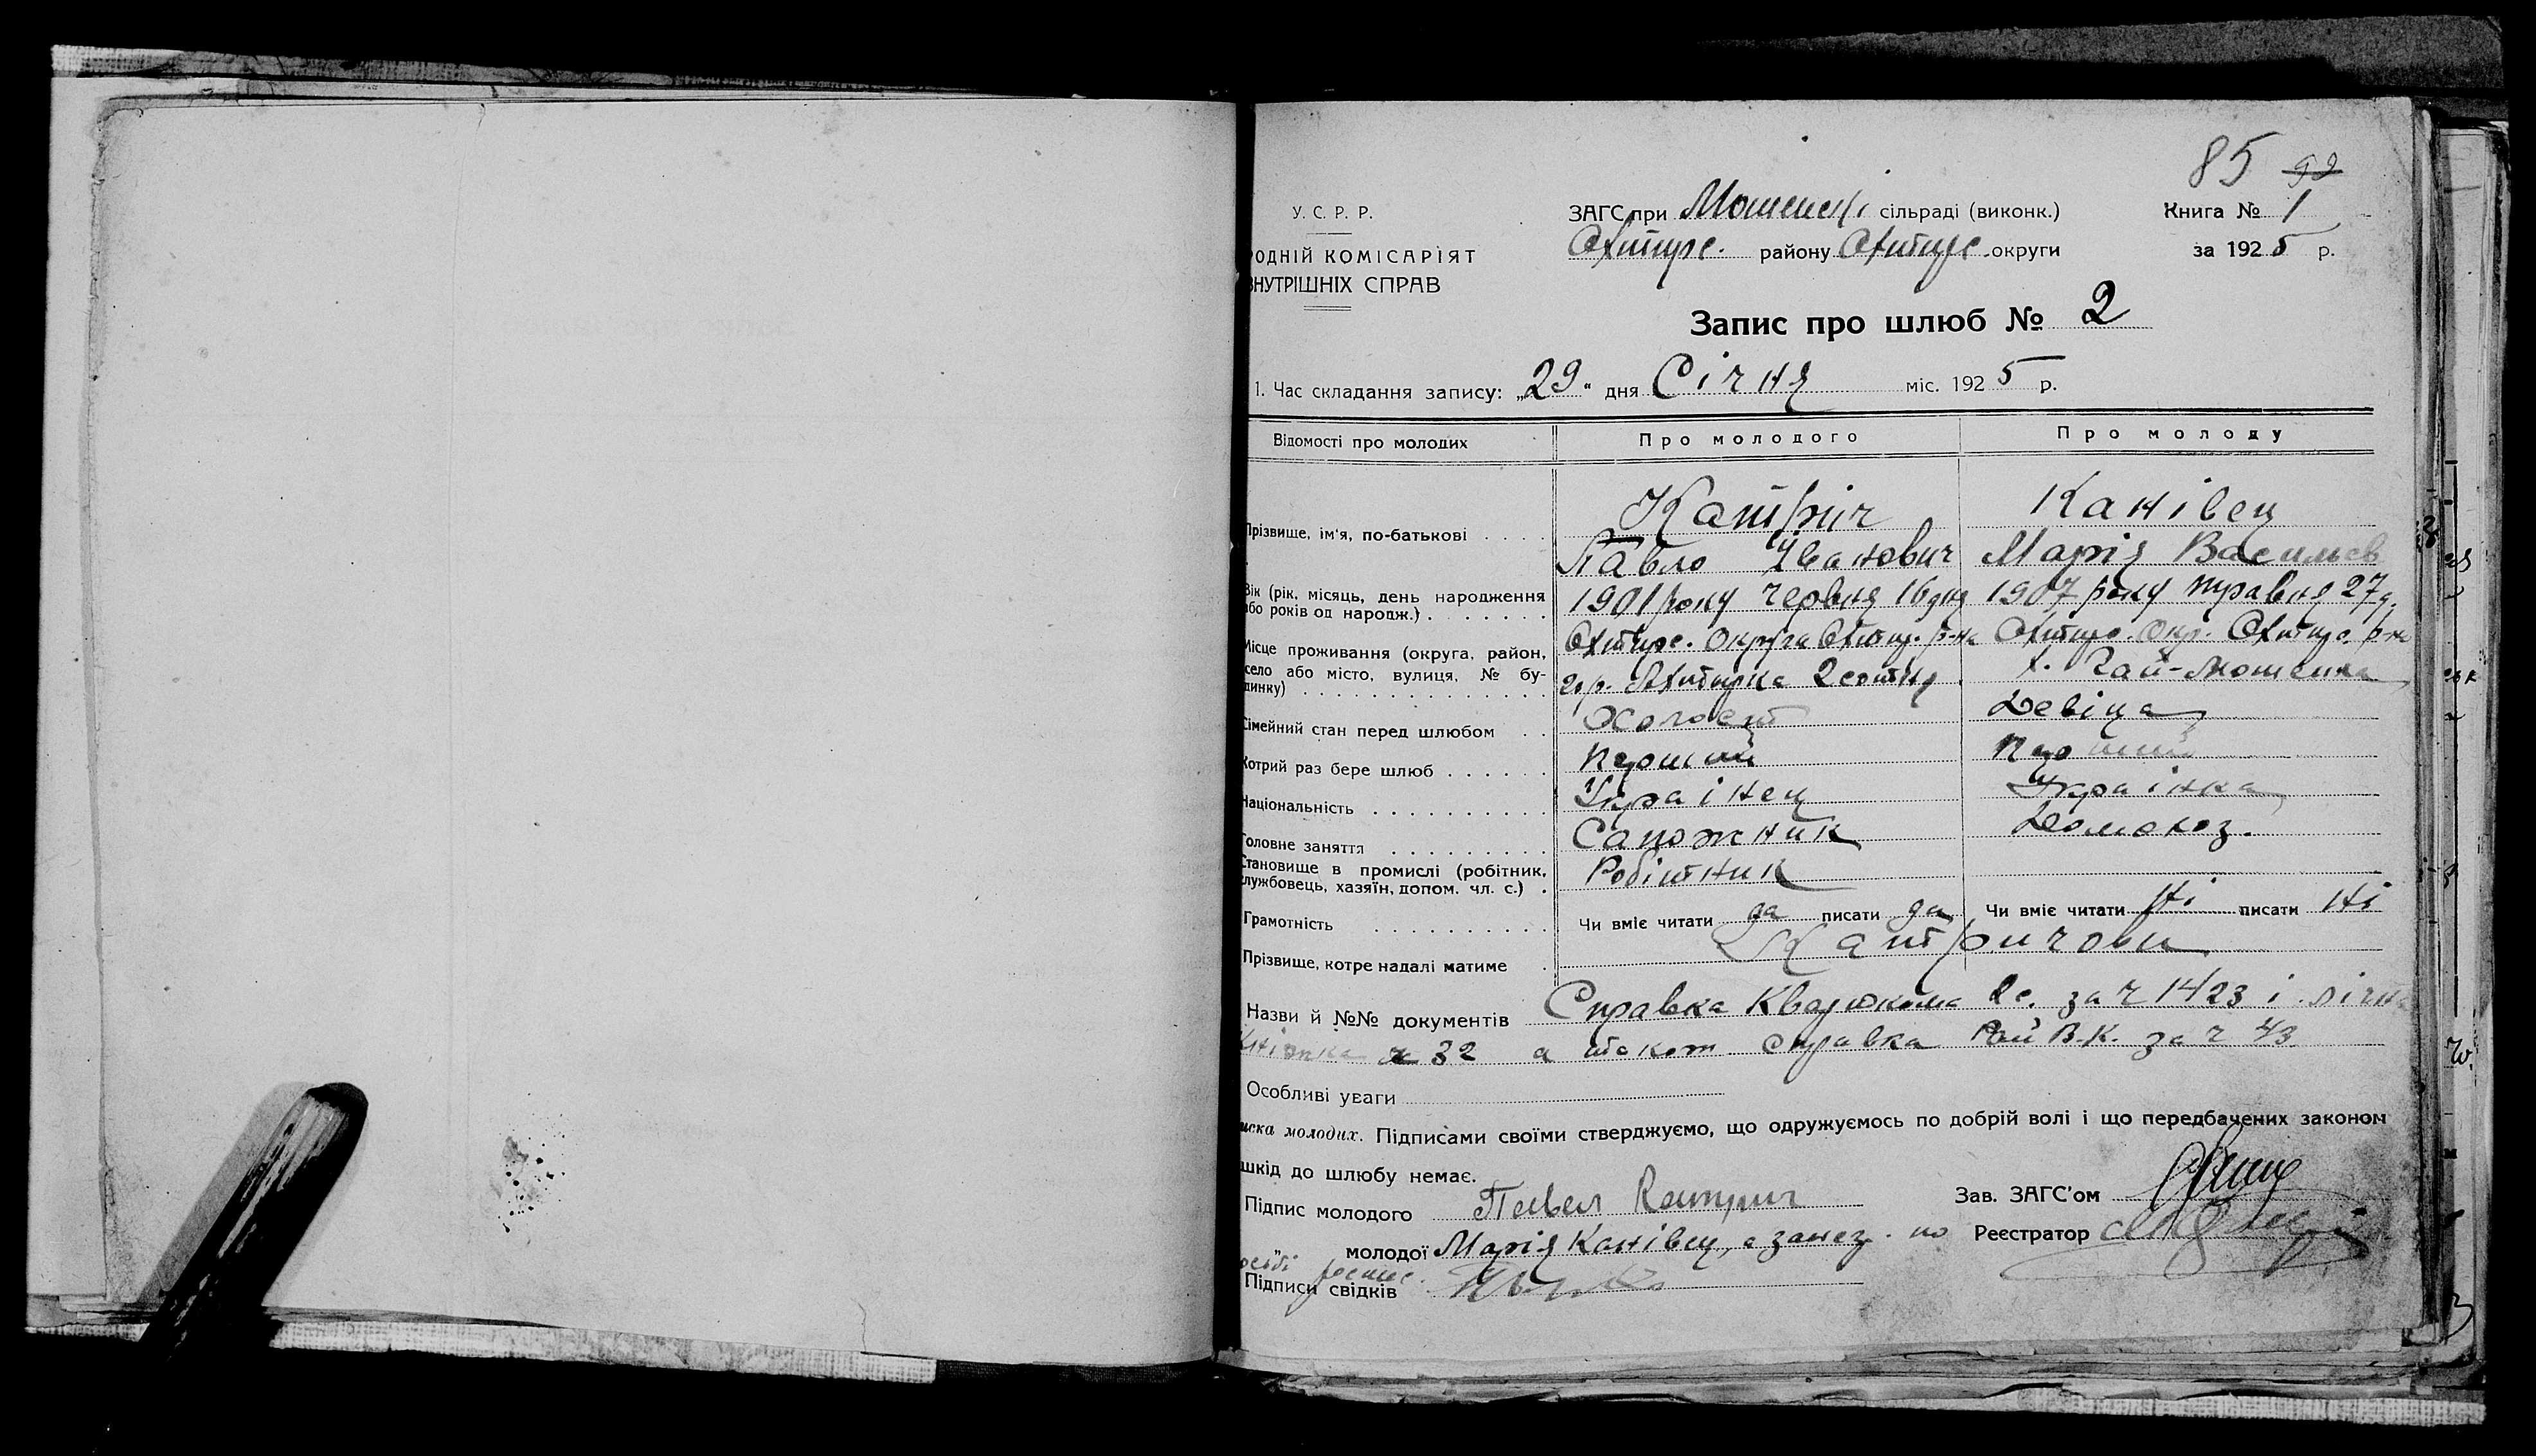 85 99
У. С. Р. Р.
РОДНІЙ КОМІСАРІЯТ
ВНУТРІШНІХ СПРАВ
ЗАГС при Мошенскі сільраді (виконк.)
Охтирс. району Охтирс. округи
Книга № 1
за 1925 р.
Запис про шлюб № 2
1. Час складання запису: „29“ дня Січня міс. 1925 р.
Відомості про молодих Про молодого Про молоду
Прізвище, ім'я, по-батькові . . . .
Катрич Канівец
Павло Іванович Марія Васильев
Вік (рік, місяць, день народження
або років од народж.) . . . . . . .
1901 року червня 16 дня 1907 року травня 27 д.
Місце проживання (округа, район,
село або місто, вулиця, № бу-
динку) . . . . . . . . . . . . . .
Охтирс. Округа Охтир. р-на Охтирс. Окр. Охтирс. р-на
гор. Охтирка 2 сотня х. Гай-Мошенка
Сімейний стан перед шлюбом . . Холост Девіца
Котрий раз бере шлюб . . . . . . Перший Перший
Національність . . . . . . . . . . Українец Українка
Головне заняття . . . . . . . . . Сапожник Домохоз.
Становище в промислі (робітник,
службовець, хазяїн, допом. чл. с.) .
Робітник
Грамотність . . . . . . . . . . Чи вміє читати да писати да Чи вміє читати Ні писати Ні
Прізвище, котре надалі матиме . Катричови
Назви й №№ документів Справка Кварткома 2 с. за ч 1423 і лічна
Кніжка № 32 а також справка Рай В.К. за ч 43
Особливі уваги
иска молодих. Підписами своїми стверджуємо, що одружуємось по добрій волі і що передбачених законом
шкід до шлюбу немає.
Підпис молодого Павел Катрич
Зав. ЗАГС'ом
„ молодої Марія Канівец, а за по
Реєстратор
Підписи свідків